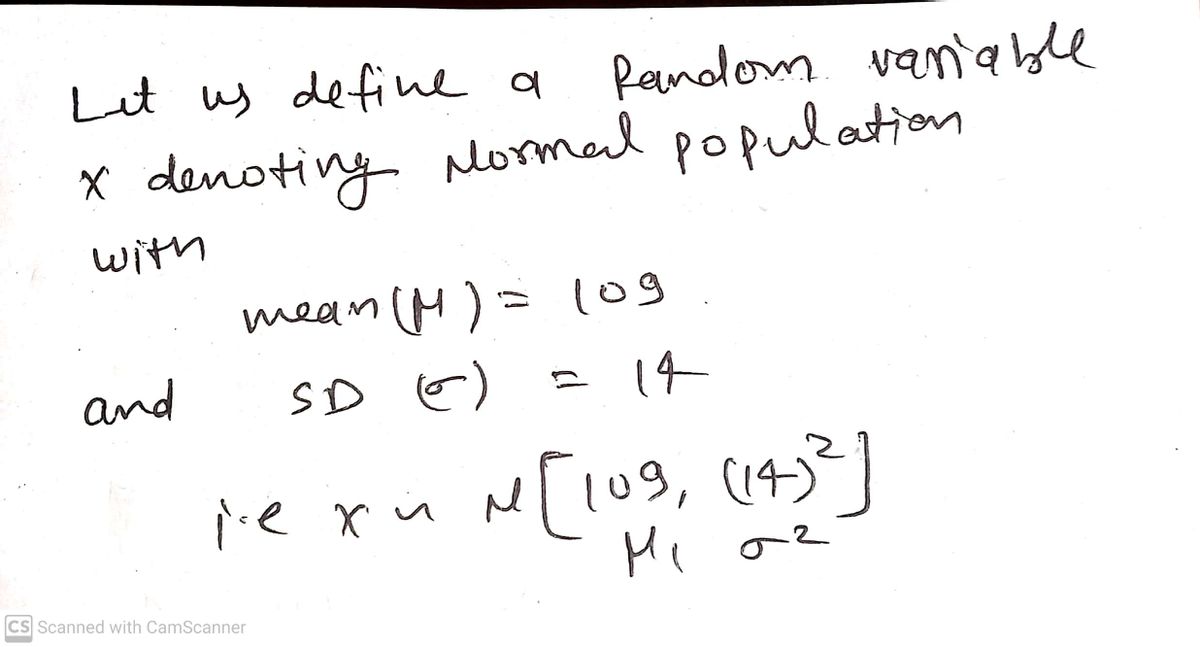 Let us define a Random variable
X denoting Normal population
with
mean (μ) = 109
and SD (σ) = 14
i.e X ~ N[109, (14)²]
μ, σ²
CS Scanned with CamScanner